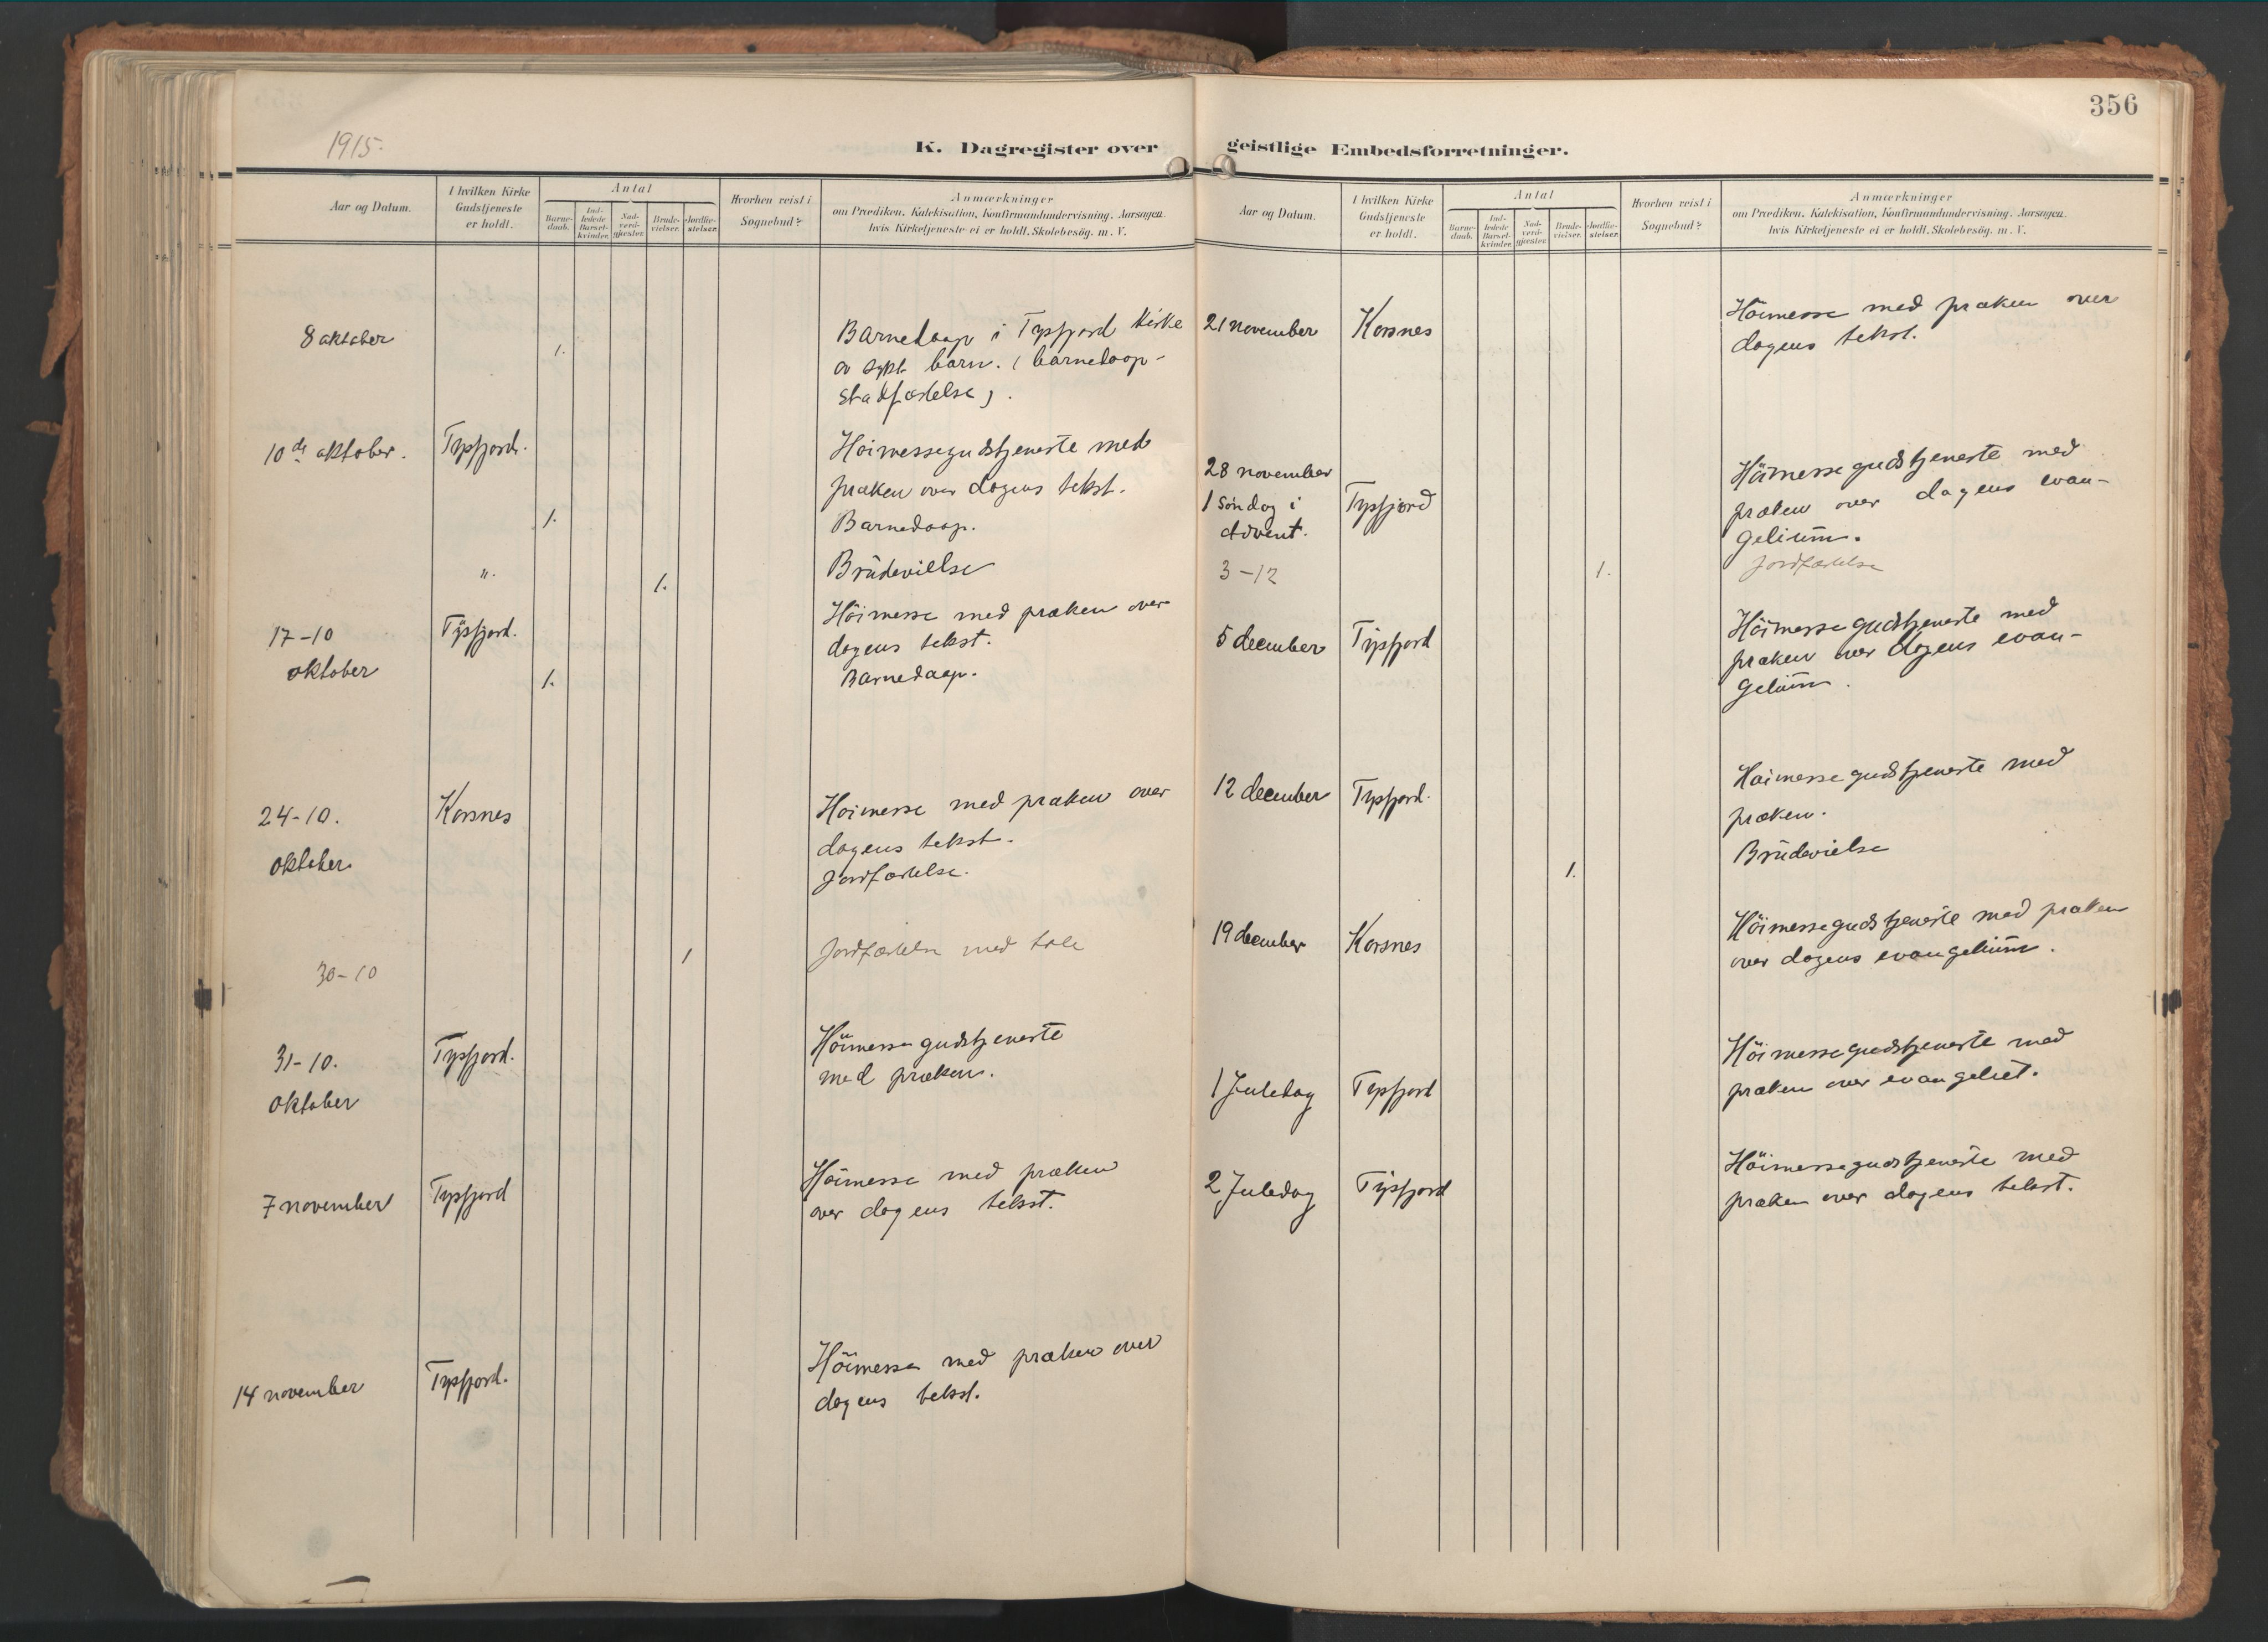 356
1915.
K. Dagregister over geistlige Embedsforretninger.
Aar og Datum.
I hvilken Kirke Gudstjeneste er holdt.
Antal
Barne-daab.
Ind-ledede Barsel-kvinder.
Nad-verd-gjæster.
Brude-vielser.
Jordfæ-stelser.
Hvorhen reist i Sognebud?
Anmærkninger
om Prædiken, Katekisation, Konfirmandundervisning, Aarsagen,
hvis Kirketjeneste ei er holdt, Skolebesög. m. V.
8 oktober
1.
Barnedaap i Tysfjord kirke
av sykt barn. (barnedaap-
stadfæstelse).
10de oktober. Tysfjord. Høimessegudstjeneste med
præken over dagens tekst.
1. Barnedaap.
". 1. Brüdevielse
17-10 Tÿsfjord. Høimesse med præken over
oktober dagens tekst.
1. Barnedaap.
24-10. Korsnes Høimesse med præken over
oktober dagens tekst.
Jordfæstelse.
30-10 1 Jordfæstelse med tale
31-10. Tysfjord. Höimessegudstjeneste
oktober med præken.
7 november Tysfjord Höimesse med præken
over dagens tekst.
14 november Tysfjord. Höimesse med præken over
dagens tekst.
Aar og Datum.
I hvilken Kirke Gudstjeneste er holdt.
Antal
Barne-daab.
Ind-ledede Barsel-kvinder.
Nad-verd-gjæster.
Brude-vielser.
Jordfæ-stelser.
Hvorhen reist i Sognebud?
Anmærkninger
om Prædiken, Katekisation, Konfirmandundervisning, Aarsagen,
hvis Kirketjeneste ei er holdt, Skolebesög. m. V.
21 november Korsnes Höimesse med præken over
dagens tekst.
28 november Höimessegudstjeneste med
1 Søndag i Tysfjord præken over dagens evan-
Advent. geliüm.
3-12 1. Jordfæstelse
5 december Tysfjord Höimessegudstjeneste med
præken over dagens evan-
geliüm.
12 december Tysfjord. Høimessegudstjeneste med
præken.
1. Brüdevielse
19 december Korsnes Höimessegudstjeneste med præken
over dagens evangeliüm.
1 Juledag Tysfjord Höimessegudstjeneste med
præken over evangeliet.
2 Juledag Tÿsfjord Höimessegudstjeneste med
præken over dagens tekst.